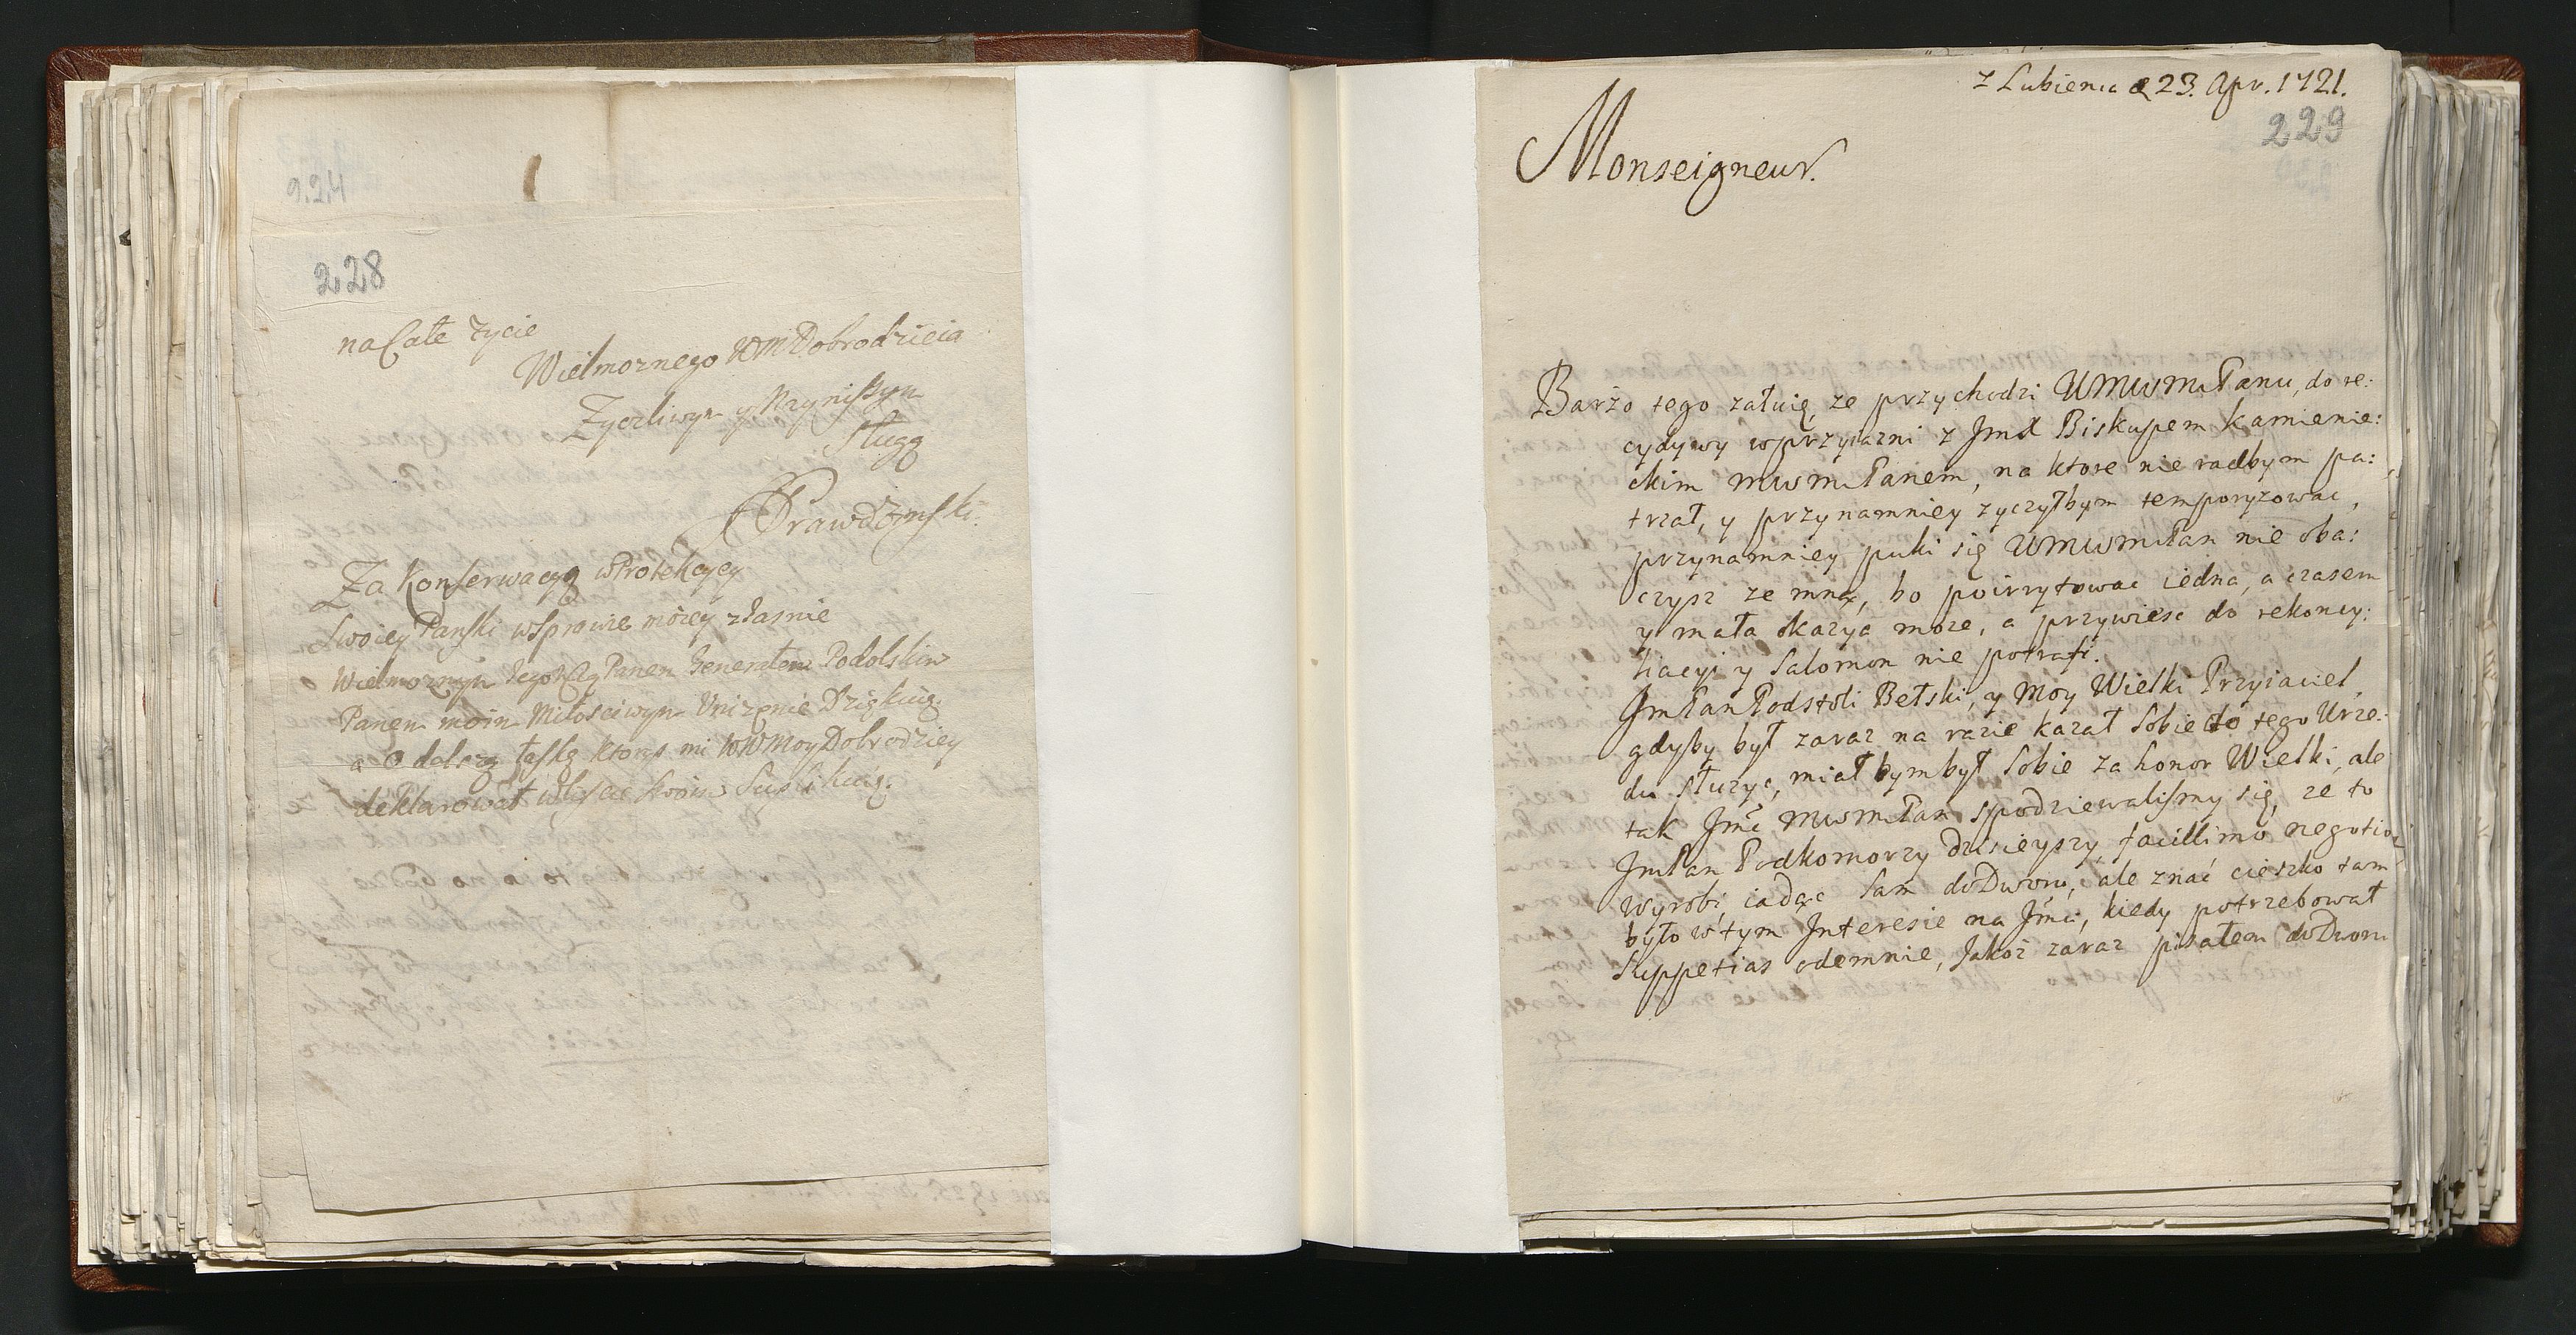 924
228
na Całe życie
Wielmoznego WM Dobrodzieia
Zyczliwym y Naynisszym
Sługą
Prawdzinski
Za Konserwacyą w Protekcyey
Swoiey Panski w Sprawie moiey z Jasnie
Wielmoznym Panem Generałem Podolskim
Panem moim Miłosciwym Unizenie Dziękuię.
a O dalszą łaskę ktorą mi WM Moy Dobrodziey
deklarował w liscie swoim Suplikuię.
z Lubienia 23. Apr. 1721.
229
Monseigneur.
Barżo tego załuię, ze przychodzi WMWMPanu, do re:
cydywy w przyiazni z Jmć Biskupem Kamienie:
ckim MWMPanem, na ktore nie radbym pa:
trzał, y przynamniey zyczyłbym temporyzowac,
przynamniey puki się WMWMPan nie oba:
czysz ze mną, bo poirrytowac iedna, a czasem
y mała okazya moze, a przywiesc do rekoncy:
liacyi y Salomon nie potrafi.
JmPan Podstoli Bełski, y Moy Wielki Przyiaciel,
gdyby był zaraz na razie kazał Sobie do tego Urzę:
du słuzyc, miałbym był Sobie za honor Wielki, ale
tak Jmć MWMPan spodziewalismy się, ze to
JmPan Podkomorzy dzisieyszy, facillimo negotio
wyrobi iadąc Sam do Dworu, ale znać cieszko tam
było w tym Interesie na Jmci, kiedy potrzebował
Suppetias odemnie, Jakoż zaraz pisałem do Dworu